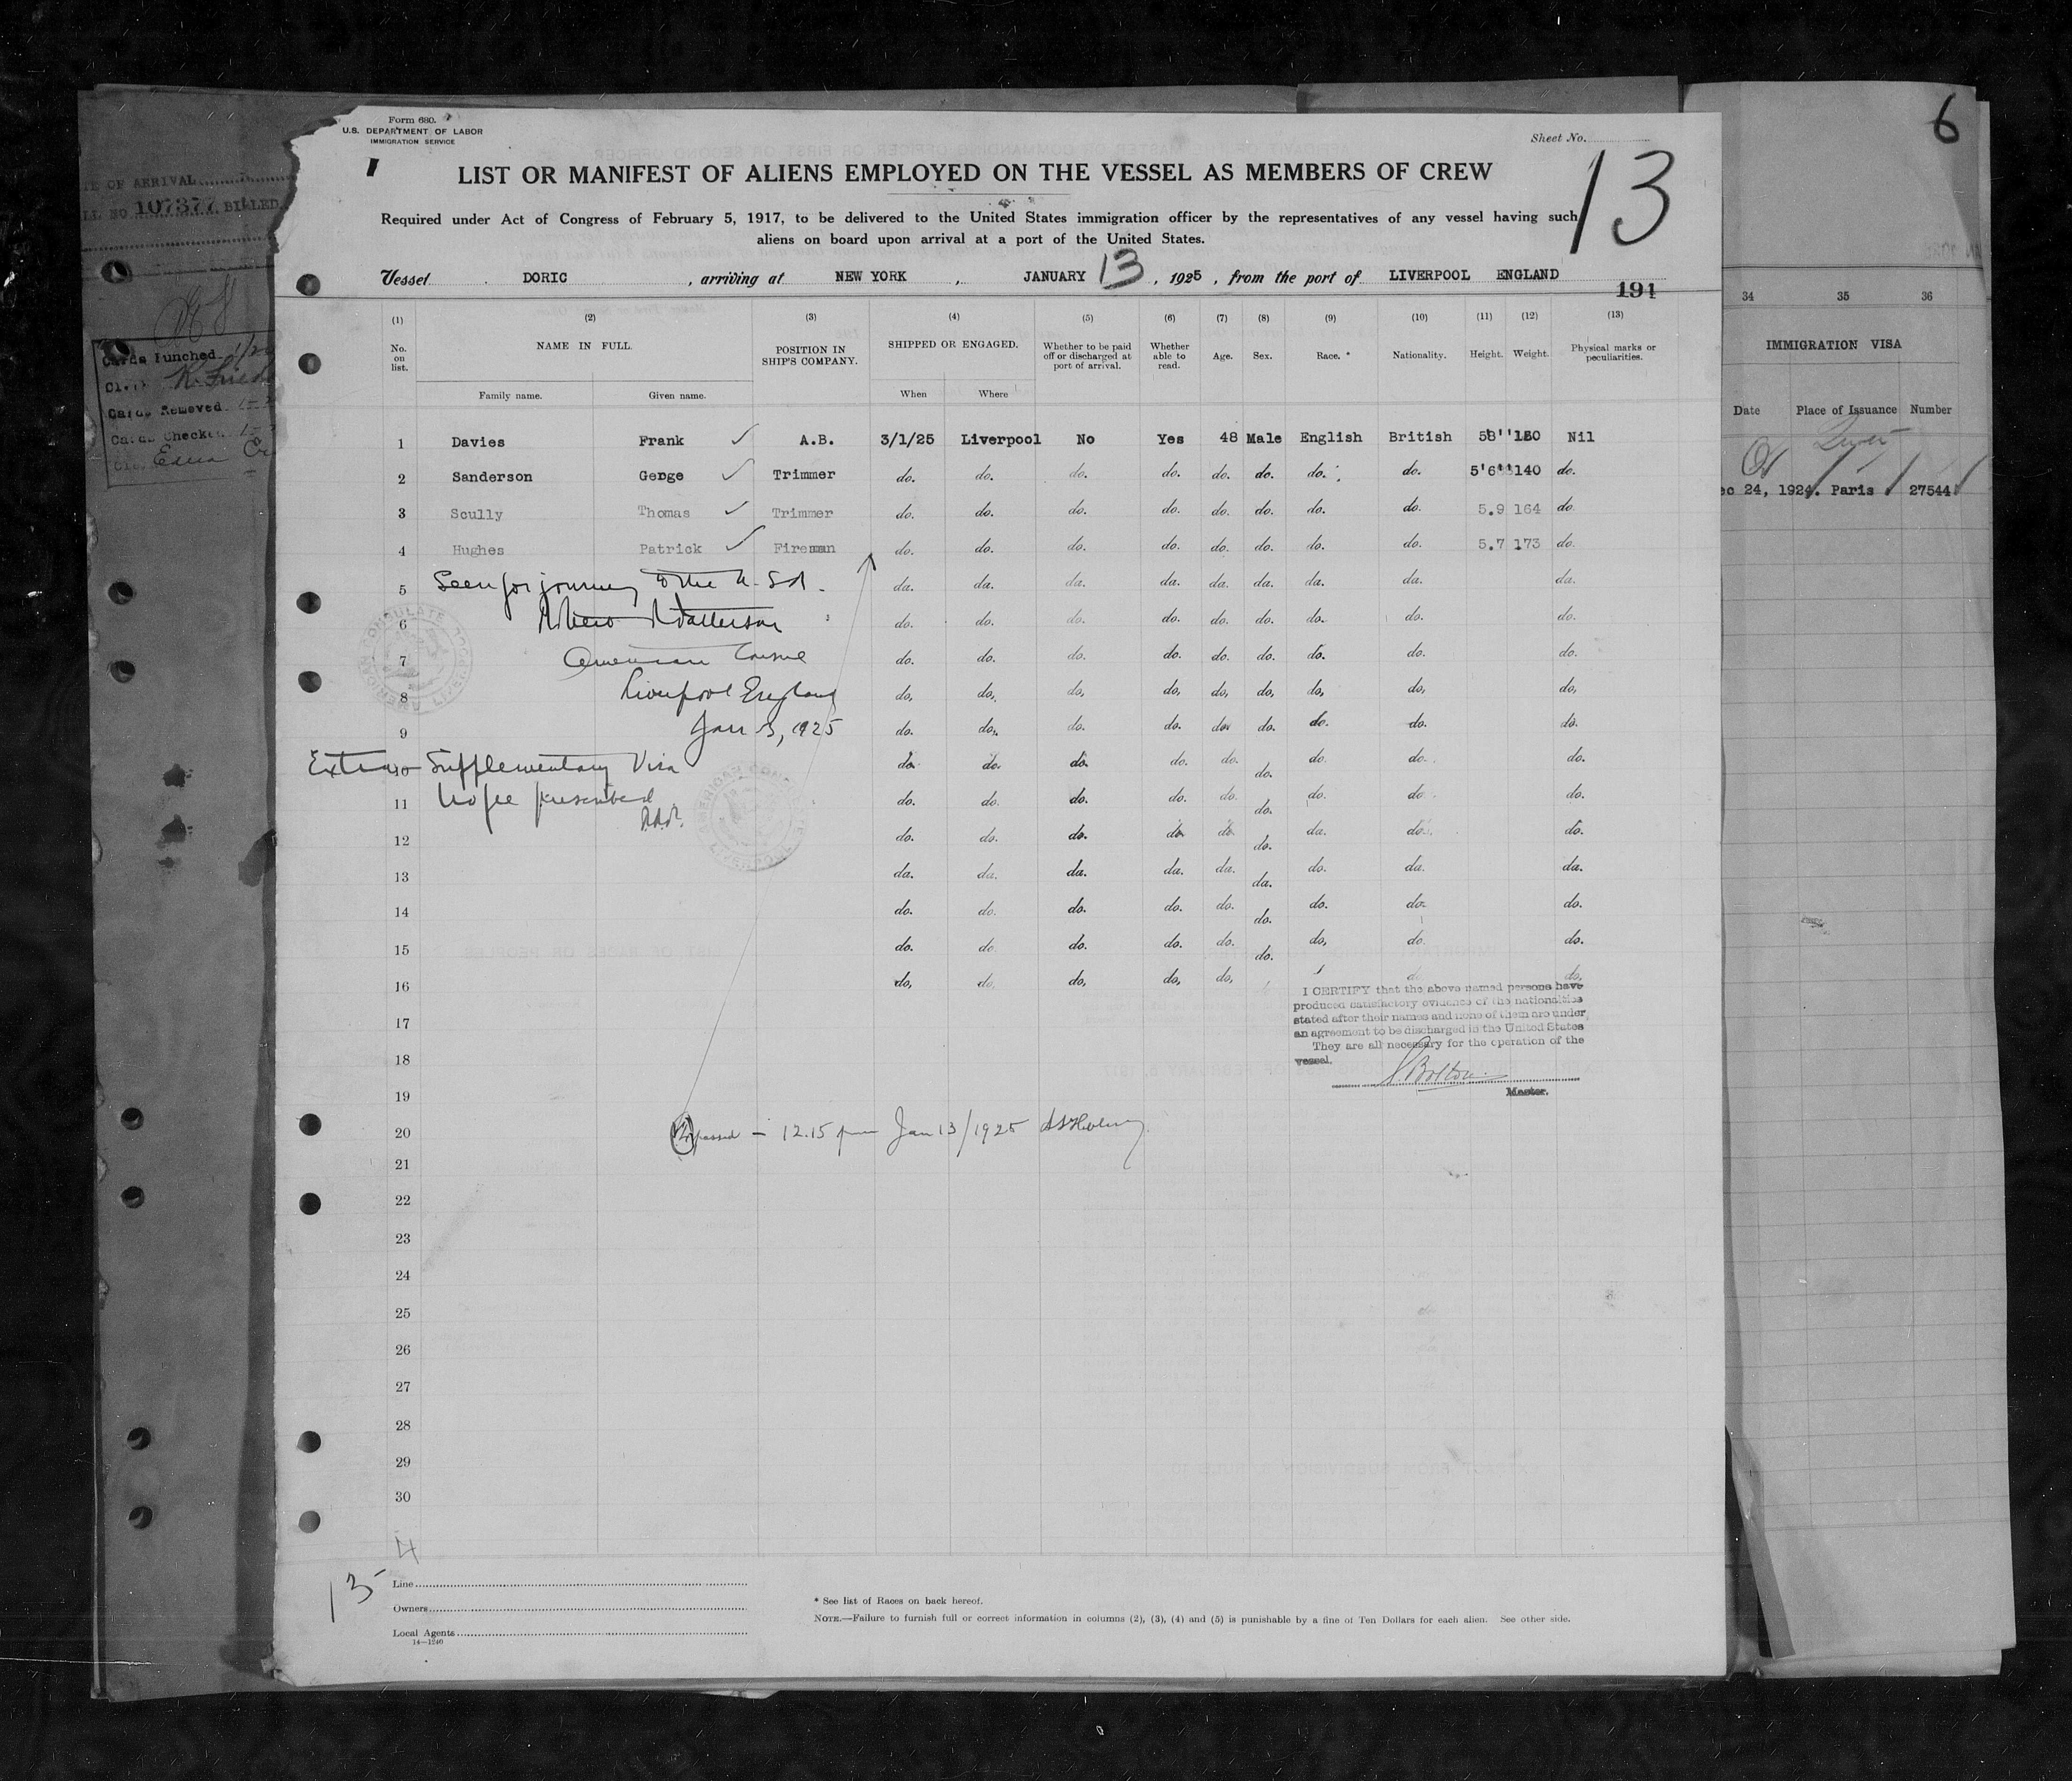 Form 680.
U.S. DEPARTMENT OF LABOR
IMMIGRATION SERVICE
Sheet No.
13
6
LIST OR MANIFEST OF ALIENS EMPLOYED ON THE VESSEL AS MEMBERS OF CREW
Required under Act of Congress of February 5, 1917, to be delivered to the United States immigration officer by the representatives of any vessel having such
aliens on board upon arrival at a port of the United States.
Vessel DORIC , arriving at NEW YORK , JANUARY 13 , 1925 , from the port of LIVERPOOL ENGLAND
191
(1) (2) (3) (4) (5) (6) (7) (8) (9) (10) (11) (12) (13)
No. on list. NAME IN FULL. POSITION IN SHIP'S COMPANY. SHIPPED OR ENGAGED. Whether to be paid off or discharged at port of arrival. Whether able to read. Age. Sex. Race. * Nationality. Height. Weight. Physical marks or peculiarities.
Family name. Given name. When Where
1 Davies Frank ✓ A.B. 3/1/25 Liverpool No Yes 48 Male English British Nil
2 Sanderson ✓ Trimmer do. do. do. do. do. do. do. do. 5'6" 140 do.
3 Scully Thomas ✓ Trimmer do. do. do. do. do. do. do. do. 5.9 164 do.
4 Hughes Patrick ✓ Fireman do. do. do. do. do. do. do. do. 5.7 173 do.
5 Seen for journey to the U.S.A. do. do. do. do. do. do. do. do. do.
6 do. do. do. do. do. do. do. do. do.
7 American Consul do. do. do. do. do. do. do. do. do.
8 Liverpool England do. do. do. do. do. do. do. do. do.
9 Jan 3, 1925 do. do. do. do. do. do. do. do. do.
10 Extra Supplementary Visa do. do. do. do. do. do. do. do. do.
11 No fee prescribed do. do. do. do. do. do. do. do. do.
12 do. do. do. do. do. do. do. do. do.
13 do. do. do. do. do. do. do. do. do.
14 do. do. do. do. do. do. do. do. do.
15 do. do. do. do. do. do. do. do. do.
16 do. do. do. do. do. do. do.
I CERTIFY that the above named persons have
produced satisfactory evidence of the nationalities
stated after their names and none of them are under
an agreement to be discharged in the United States
They are all necessary for the operation of the
vessel.
Bolton
Master.
17
18
19
20 passed - 12.15 pm Jan 13/1925
21
22
23
24
25
26
27
28
29
30
4
13
Line
Owners
Local Agents
14—1240
* See list of Races on back hereof.
NOTE.—Failure to furnish full or correct information in columns (2), (3), (4) and (5) is punishable by a fine of Ten Dollars for each alien. See other side.
OF ARRIVAL
NO 107377 BILLED
Cards Punched
Cards Removed
Cards Checked
Edna
34 35 36
IMMIGRATION VISA
Date Place of Issuance Number
24, 1924. Paris 27544